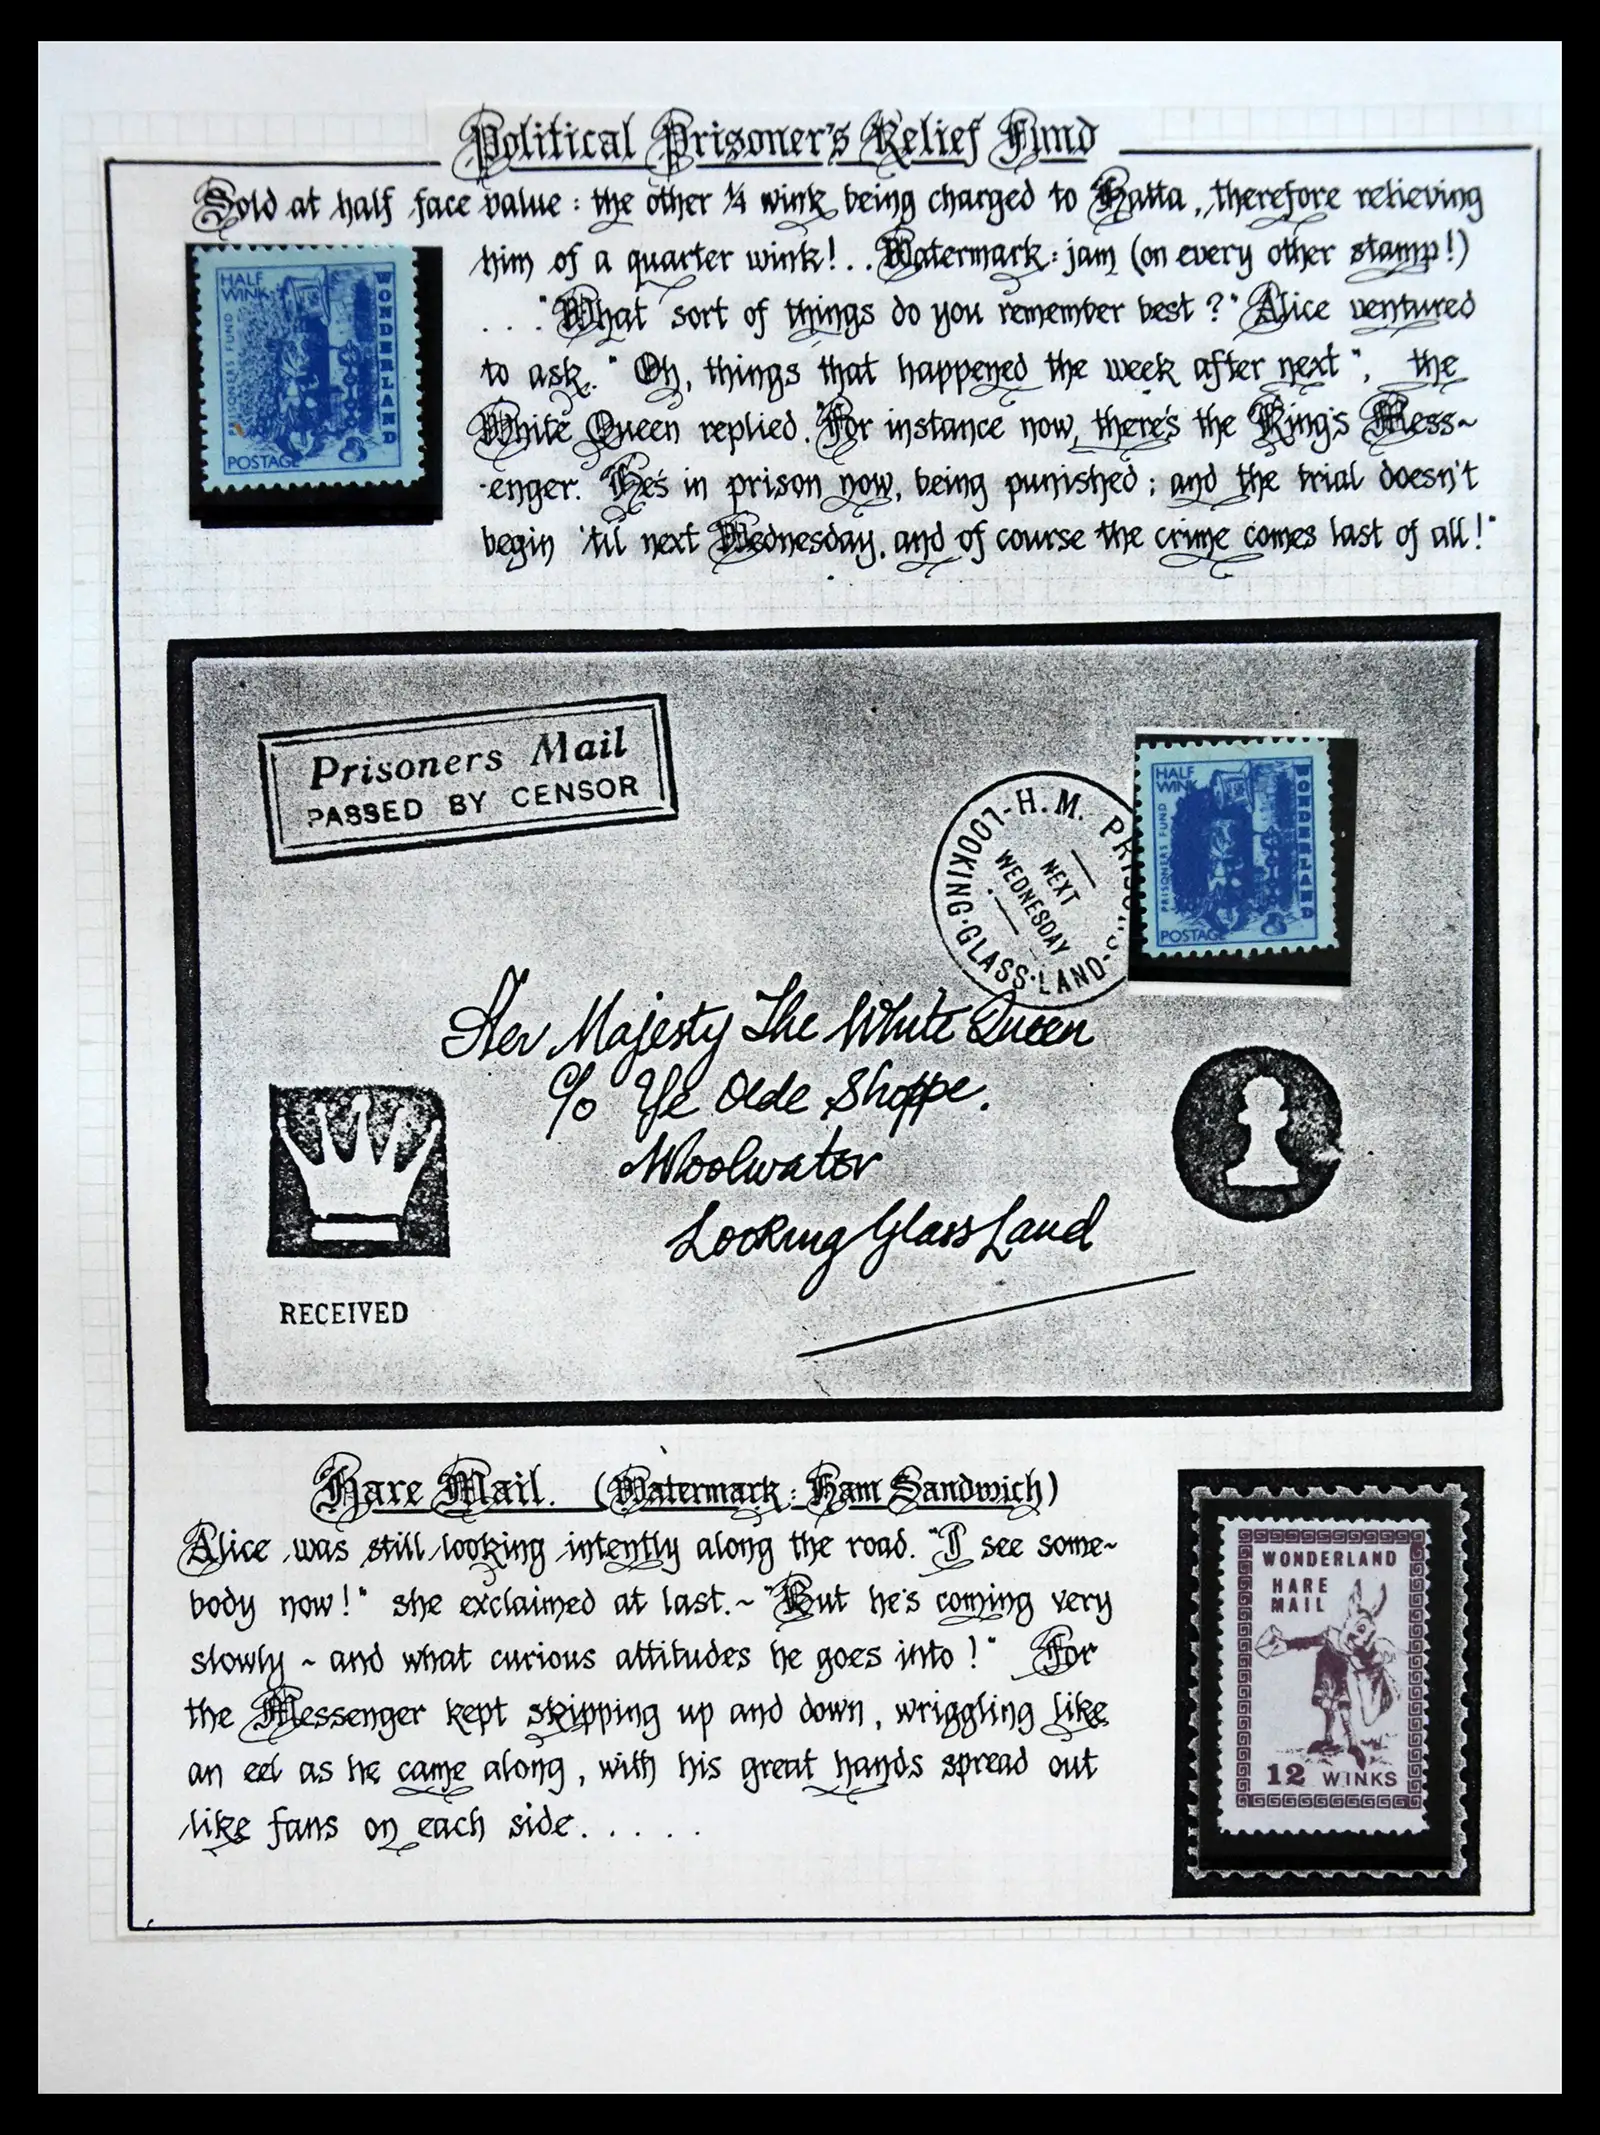 Political Prisoner's Relief Fund
Sold at half face value : the other ¼ wink being charged to Hatta, therefore relieving
him of a quarter wink! . . Watermark : jam (on every other stamp!)
. . . . "What sort of things do you remember best?" Alice ventured
to ask. "Oh, things that happened the week after next", the
White Queen replied. "For instance now, there's the King's Mess~
~enger. He's in prison now, being punished; and the trial doesn't
begin 'til next Wednesday, and of course the crime comes last of all!"
HALF
WINK
WONDERLAND
PRISONERS FUND
POSTAGE
Prisoners Mail
PASSED BY CENSOR
LOOKING·GLASS·LAND H.M.
NEXT
WEDNESDAY
HALF
WINK
WONDERLAND
PRISONERS FUND
POSTAGE
Her Majesty The White Queen
c/o Ye Olde Shoppe.
Woolwater
Looking Glass Land
RECEIVED
Hare Mail. (Watermark : Ham Sandwich)
Alice was still looking intently along the road. "I see some~
body now!" she exclaimed at last. ~ "But he's coming very
slowly ~ and what curious attitudes he goes into!" For
the Messenger kept skipping up and down, wriggling like
an eel as he came along, with his great hands spread out
like fans on each side. . . . . .
WONDERLAND
HARE
MAIL
12 WINKS